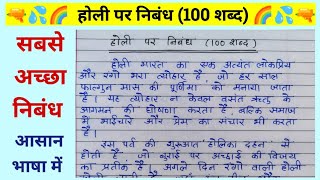 होली पर निबंध (100 शब्द)
सबसे
अच्छा
निबंध
आसान
भाषा में
होली पर निबंध (100 शब्द)
होली भारत का एक अत्यंत लोकप्रिय
और रंगों भरा त्योहार है, जो हर साल
फाल्गुन मास की पूर्णिमा को मनाया जाता
है। यह त्योहार न केवल बसंत ऋतु के
आगमन की घोषणा करता है बल्कि समाज
में भाईचारे और प्रेम का संचार भी करता
है।
इस पर्व की शुरुआत होलिका दहन से
होती है, जो बुराई पर अच्छाई की विजय
का प्रतीक है। अगले दिन रंगों वाली होली